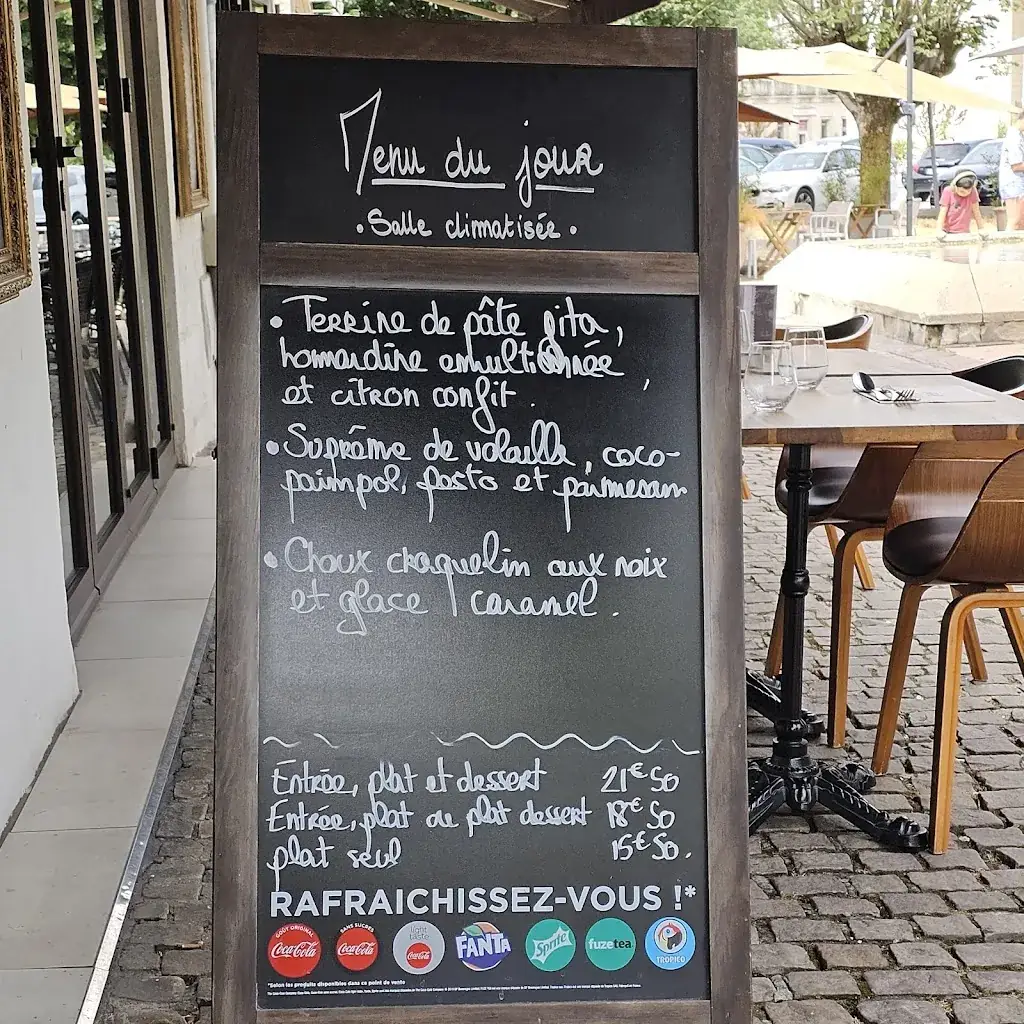 Menu du jour
• Salle climatisée •
• Terrine de pâte gita,
homardine émultionnée,
et citron confit.
• Suprême de volaille, coco-
paimpol, pesto et parmesan
• Choux craquelin aux noix
et glace caramel.
Entrée, plat et dessert 21€50
Entrée, plat ou plat dessert 18€50
plat seul 15€50.
RAFRAICHISSEZ-VOUS !*
GOÛT ORIGINAL SANS SUCRES light taste
Coca-Cola Coca-Cola Coca-Cola FANTA Sprite fuzetea TROPICO
*Selon les produits disponibles dans ce point de vente